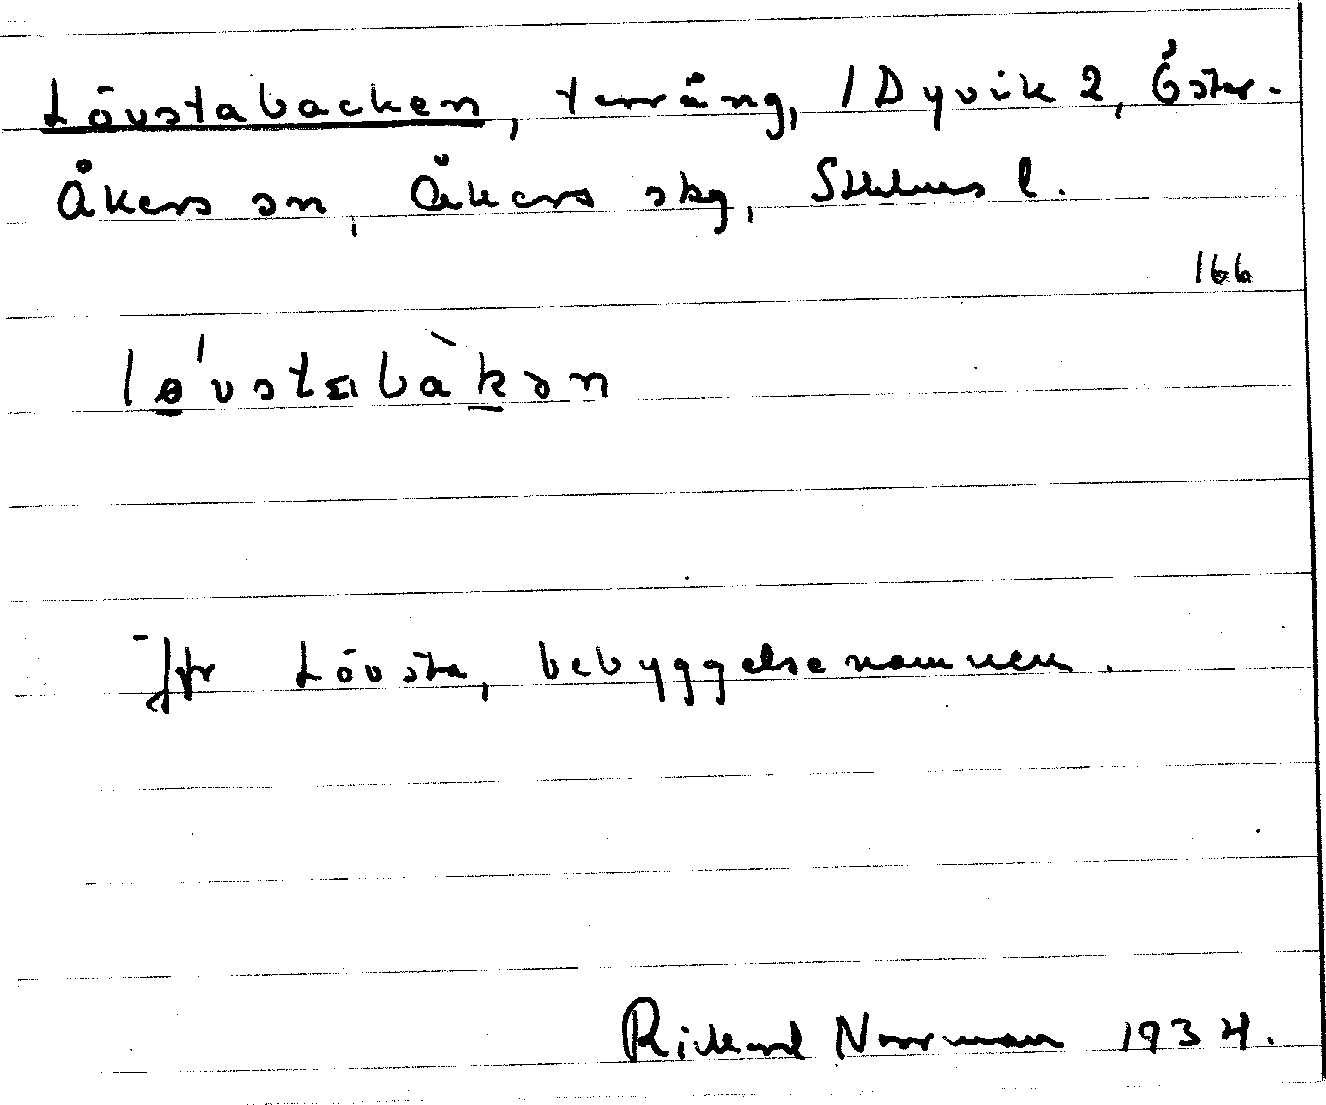 Lövstabacken, terräng, 1 Dyvik 2, Öster-
Åkers sn, Åkers skg, Sthlms l.
166
lǿvstabàkən
Jfr Lövsta, bebyggelsenamnen.
Rickard Norrman 1934.